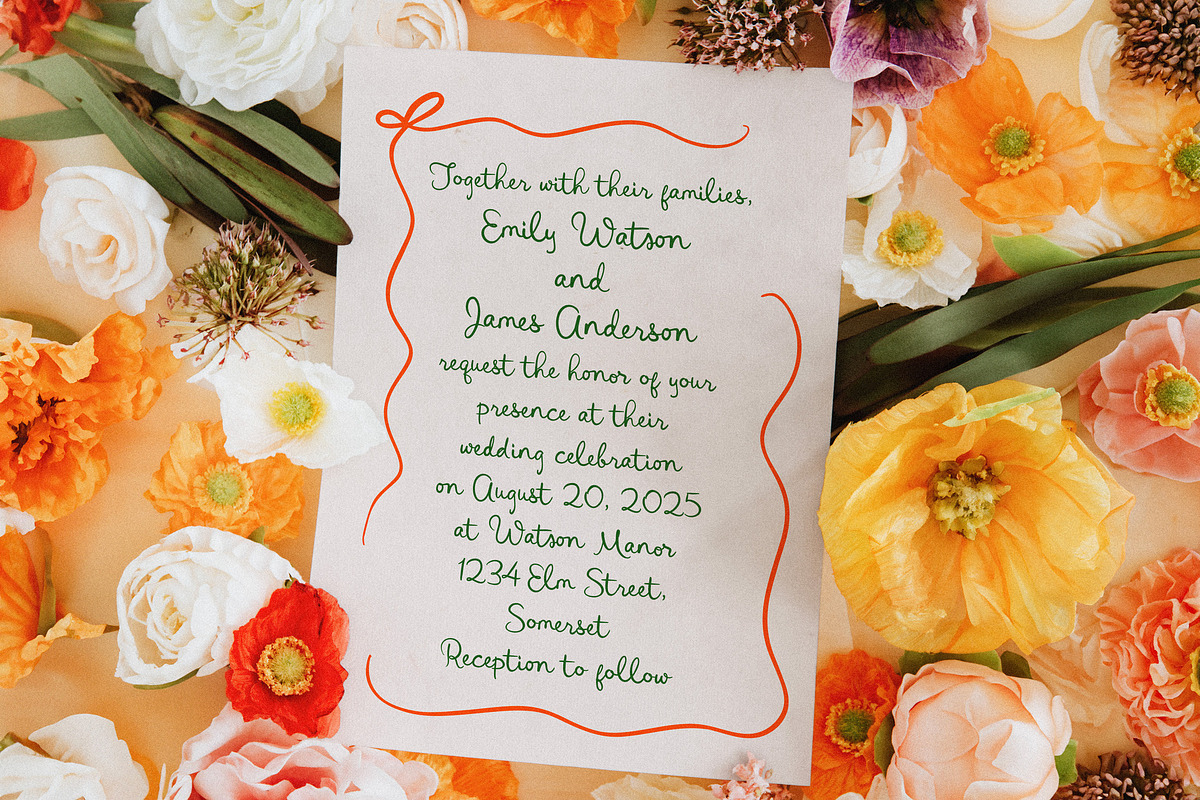 Together with their families,
Emily Watson
and
James Anderson
request the honor of your
presence at their
wedding celebration
on August 20, 2025
at Watson Manor
1234 Elm Street,
Somerset
Reception to follow